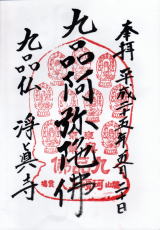 奉拝 平成二十五年五月二十日
九品阿弥陀佛
九品仏 浄眞寺